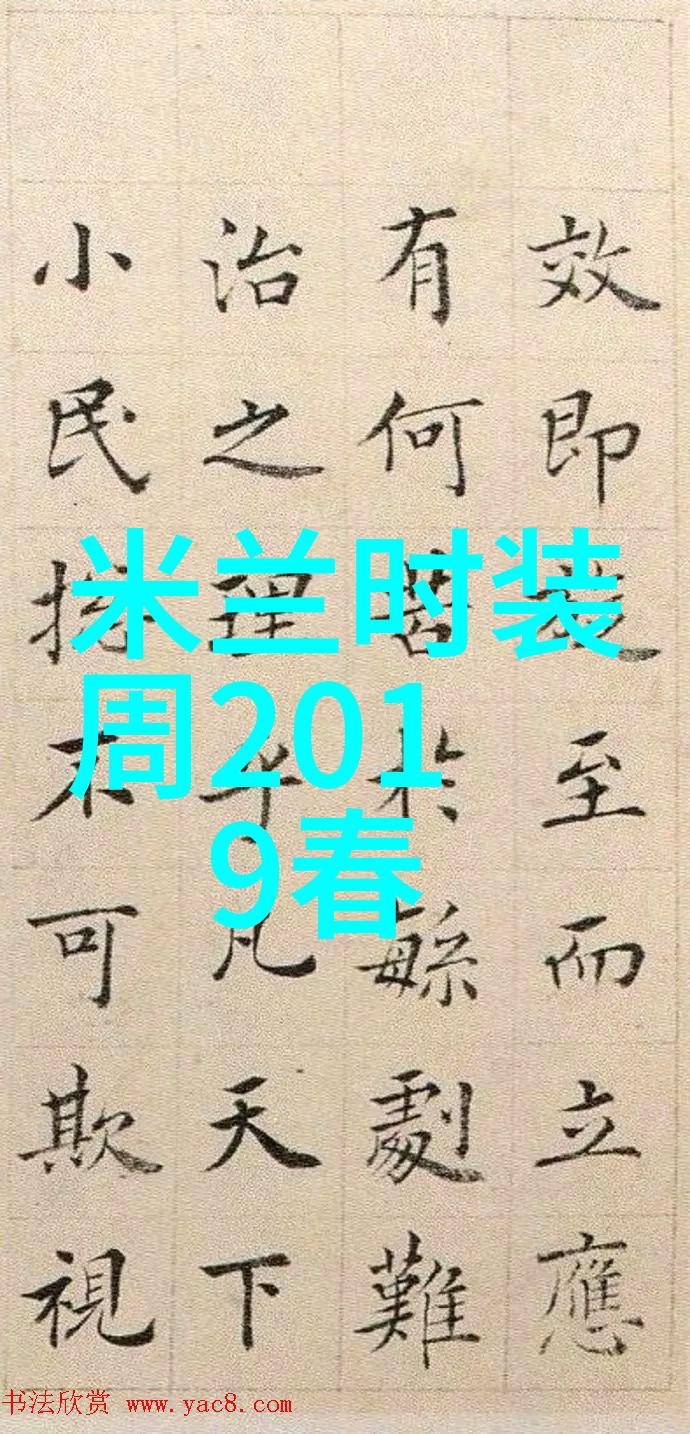 效即至而立應
有何苦於緐劇難
治之理乎凡天下
小民不可欺視
米兰时装
周201
9春
书法欣赏 www.yac8.com